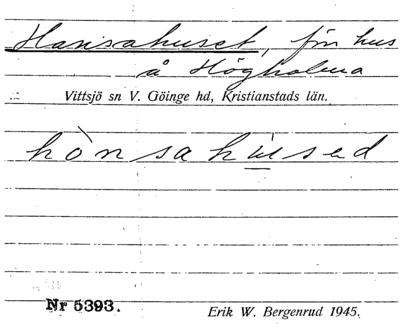 Hansahuset, fin hus
å Högholma
Vittsjö sn V. Göinge hd, Kristianstads län.
hònsahu̱sed
Nr 5393.
Erik W. Bergenrud 1945.